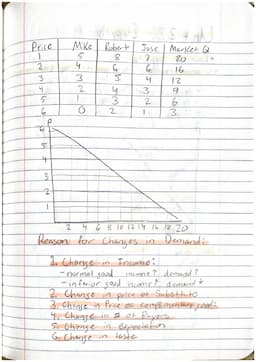 Price Mike Robert Jose Market Q
1 5 8 7 20
2 4 6 6 16
3 3 5 4 12
4 2 4 3 9
5 1 3 2 6
6 0 2 1 3
P
6
5
4
3
2
1
2 4 6 8 10 12 14 16 18 20
Reason for Changes in Demand:
1. Change in Income:
- normal good income↑ demand↑
- inferior good income↑ demand↓
2. Change in price of Substitute
3. Change in Price of complimentary good:
4. Change in # of Buyers
5. Change in expectation
6. Change in taste